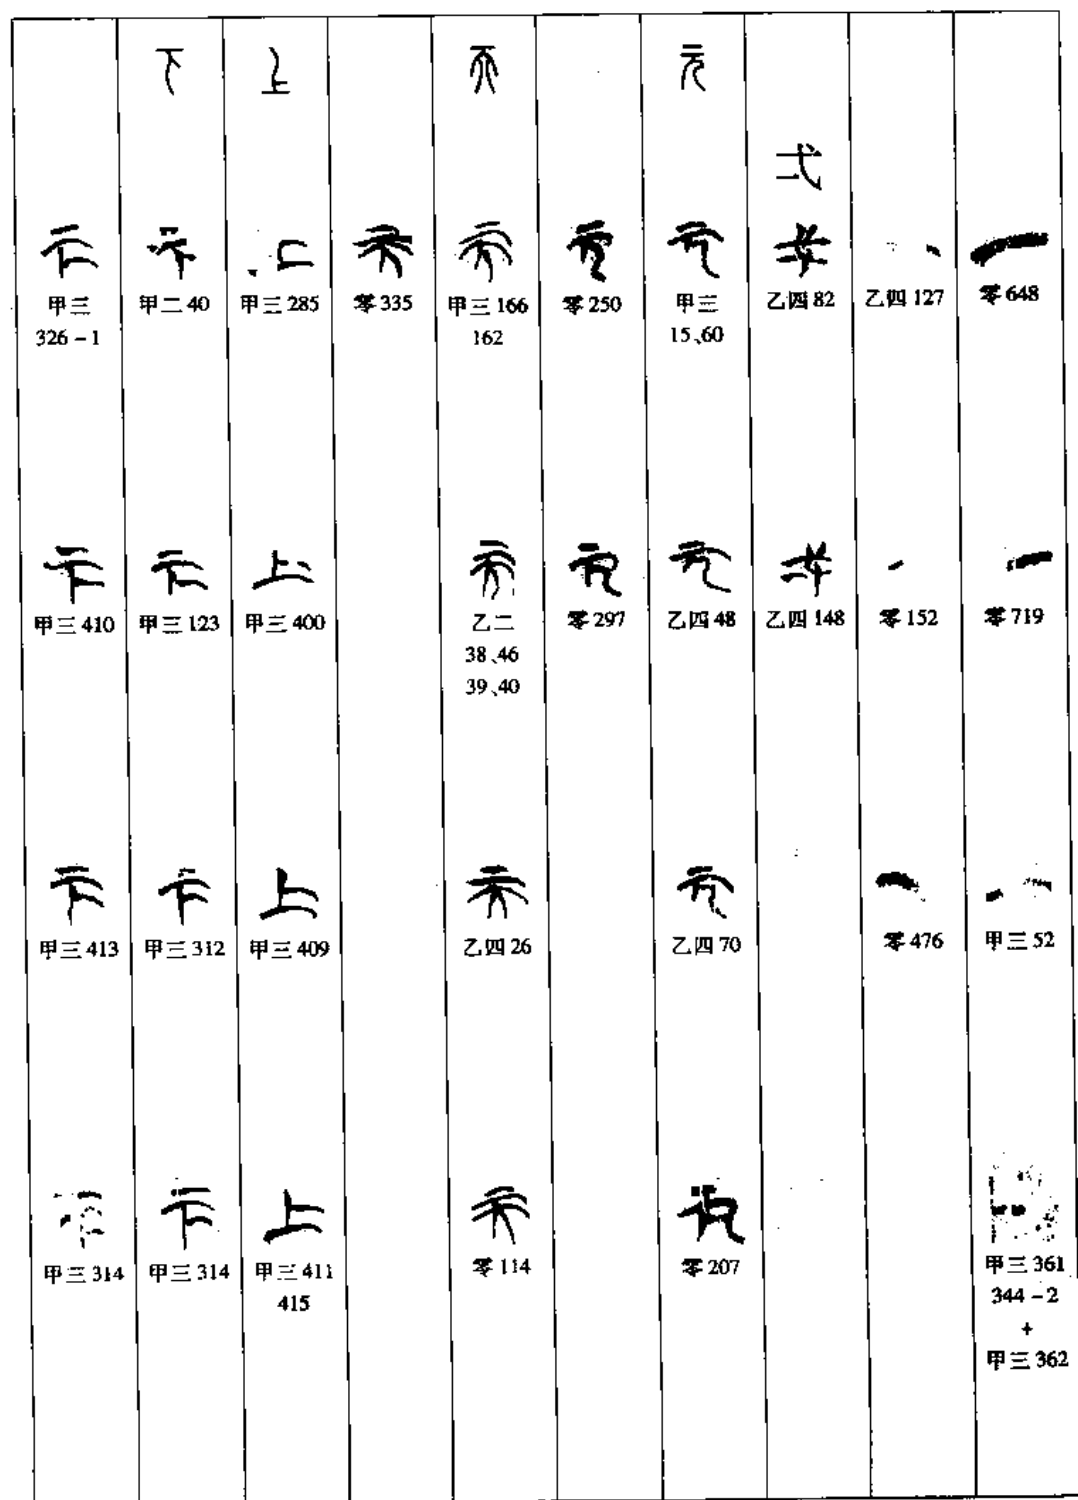 零648
零719
甲三52
甲三361
344-2
+
甲三362
乙四127
零152
零476
弌
乙四82
乙四148
元
甲三
15、60
乙四48
乙四70
零207
零250
零297
天
甲三166
162
乙二
38、46
39、40
乙四26
零114
零335
上
甲三285
甲三400
甲三409
甲三411
415
下
甲二40
甲三123
甲三312
甲三314
甲三
326-1
甲三410
甲三413
甲三314